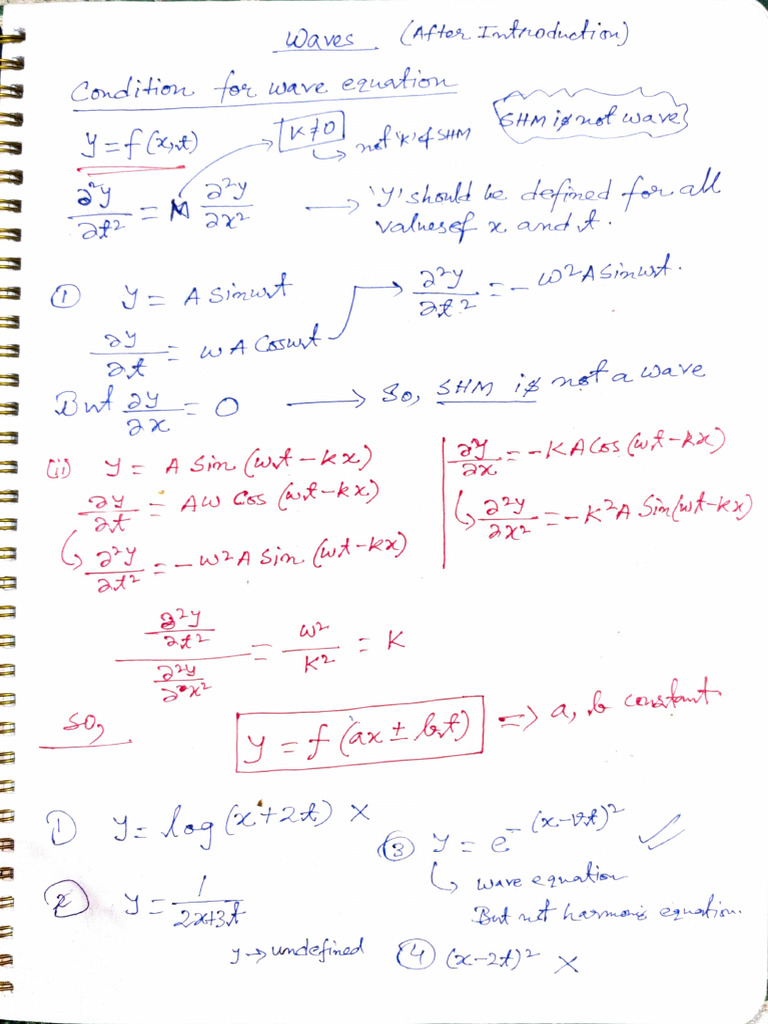 Waves (After Introduction)
Condition for wave equation
y = f(x,t)
K≠0
↳ not 'K' of SHM
SHM is not wave
∂²y/∂t² = M ∂²y/∂x² → 'y' should be defined for all
values of x and t.
① y = A Sinωt
∂y/∂t = ωA Cosωt → ∂²y/∂t² = -ω²A Sinωt.
But ∂y/∂x = 0 → So, SHM is not a wave
(ii) y = A Sin (ωt-kx)
∂y/∂t = Aω Cos (ωt-kx)
↳ ∂²y/∂t² = -ω²A Sin (ωt-kx)
∂y/∂x = -KA Cos (ωt-kx)
↳ ∂²y/∂x² = -K²A Sin(ωt-kx)
(∂²y/∂t²)/(∂²y/∂x²) = ω²/K² = K
So, y = f(ax ± bt) ⇒ a, b constant.
① y = log(x+2t) ×
② y = 1/(2x+3t)
y → undefined
③ y = e^-(x-vt)² ✓
↳ wave equation
But not harmonic equation.
④ (x-2t)² ×